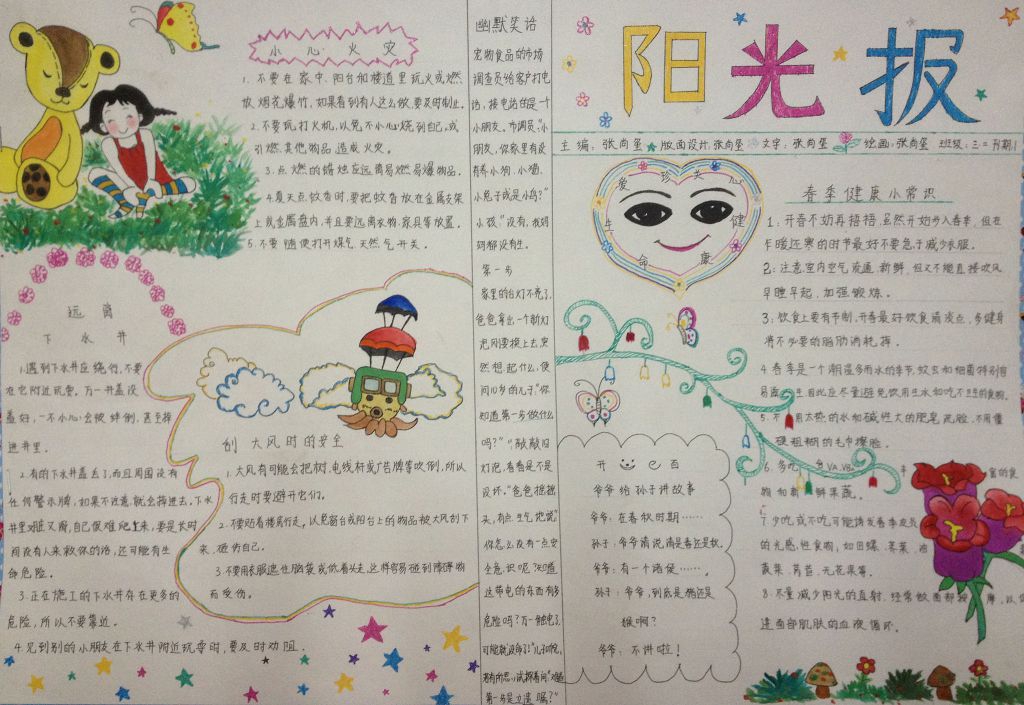 阳光报
主编：张尚奎 版面设计：张尚奎 文字：张尚奎 绘画：张尚奎 班级：三
小心火灾
1．不要在家中、阳台和楼道里玩火或燃
放烟花爆竹，如果看到有人这么做，要及时制止。
2．不要玩打火机，以免不小心烧到自己，或
引燃其他物品造成火灾。
3．点燃的蜡烛应远离易燃易爆物品。
4．夏天点蚊香时，要把蚊香放在金属支架
上或金属盘内，并且要远离衣物、家具等放置。
5．不要随便打开煤气、天然气开关。
远离
下水井
1．遇到下水井应绕行，不要
在它附近玩耍，万一井盖没
盖好，一不小心会被绊倒，甚至掉
进井里。
2．有的下水井盖丢了，而且周围没有
任何警示牌，如果不注意就会掉进去。下水
井里又暗又脏，自己很难爬上来，要是长时
间没有人来救你的话，还可能有生
命危险。
3．正在施工的下水井存在更多的
危险，所以不要靠近。
4．见到别的小朋友在下水井附近玩耍时，要及时劝阻．
刮大风时的安全
1．大风有可能会把树、电线杆或广告牌等吹倒，所以
行走时要避开它们。
2．不要贴着楼房行走，以免窗台或阳台上的物品被大风刮下
来，砸伤自己。
3．不要用衣服遮住脑袋或低着头走，这样容易碰到障碍物
而受伤。
幽默笑话
宠物食品的市场
调查员给客户打电
话，接电话的是一个
小朋友。市调员：“小
朋友，你家里有没
有养小狗、小猫、
小兔子或是小鸟？”
小孩：“没有，我妈
妈都没有生。
第一步
家里的台灯不亮了，
爸爸拿出一个新灯
泡刚要换上去，突
然想起什么，便
问10岁的儿子：“你
知道第一步做什么
吗？”“敲敲旧
灯泡，看看是不是
没坏。”爸爸摇摇
头，有点生气地说：
你怎么没有一点安
全意识呢？知道
这带电的东西有多
危险吗？万一触电了，
可能就没命了！”儿子
第一步是立遗嘱？”
爱 珍 关 心
生 命 健 康
开 心 e 百
爷爷给孙子讲故事
爷爷：在春秋时期……
孙子：爷爷请说清是春还是秋。
爷爷：有一个诸侯……．
孙子：爷爷，到底是猪还是
猴啊？
爷爷：不讲啦！
春季健康小常识
1：开春不妨再捂捂，虽然开始步入春季，但在
乍暖还寒的时节最好不要急于减少衣服。
2：注意室内空气流通、新鲜，但又不能直接吹风，
早睡早起，加强锻炼。
3：饮食上要有节制，开春最好饮食清淡点，多健身
将不必要的脂肪消耗掉．
4春季是一个潮湿多雨水的季节，蚊虫和细菌特别容
易
应尽量避免饮用生水和吃不熟的食物。
5．不 用太热的水和碱性大的肥皂洗脸，不用僵
硬粗糙的毛巾擦脸。
6．多吃 含VA、VB
物和新鲜果蔬。
7．少吃或不吃可能诱发春季皮炎
的光感性食物，如田螺、苋菜、油
菠菜、莴苣、无花果等。
8．尽量减少阳光的直射，经常做面部按摩，以
进面部肌肤的血液循环．